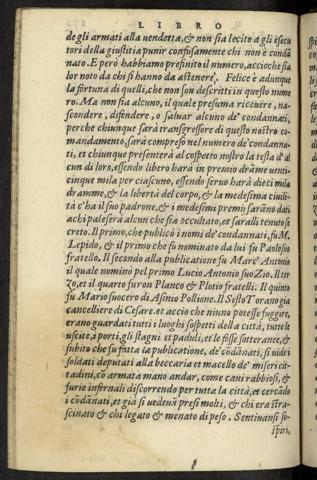 LIBRO
de gli armati alla uendetta, & non sia lecito a gli esecu
tori della giustitia punir confusamente chi non è condā
nato. E però habbiamo prefinito il numero, accioche sia
lor noto da chi si hanno da astenere. Felice è adunque
la fortuna di quelli, che non son descritti in questo nume
ro. Ma non sia alcuno, il quale presuma riceuere, na-
scondere, difendere, o saluar alcuno de' condannati,
perche chiunque sarà transgressore di questo nostro co
mandamento, sarà compreso nel numero de' condanna-
ti, et chiunque presenterà al cospetto nostro la testa d' al
cun di loro, essendo libero harà in premio dráme uenti-
cinque mila per ciascuno, essendo seruo harà dieci mila
dramme, & la libertà del corpo, & la medesima ciuili-
tà c'ha il suo padrone, & i medesimi premij saráno dati
a chi paleserà alcun che sia occultato, et saralli tenuto se
creto. Il primo, che publicò i nomi de' condannati, fu M.
Lepido, & il primo che fu nominato da lui fu Paolo suo
fratello. Il secondo alla publicatione fu Marc' Antonio
il quale nominò pel primo Lucio Antonio suo Zio. Il ter
zo, et il quarto furon Planco & Plotio fratelli. Il quinto
fu Mario suocero di Asinio Pollione. Il Sesto Toranio già
cancelliere di Cesare. et accio che niuno potesse fuggire,
erano guardati tutti i luoghi sospetti della città, tutte le
uscite, i porti, gli stagni et paduli, et le fosse sotterrane, &
subito che fu fatta la publicatione, de' códānati, si uidei
soldati deputati alla beccaria et macello de' miseri cit-
tadini, có armata mano andar, come cani rabbiosi, &
furie infernali discorrendo per tutta la città, et cercādo
i códānati, et già si uedeuā presi molti, & chi era stra-
scinato & chi legato & menato di peso. Sentiuansi so-
spiri,